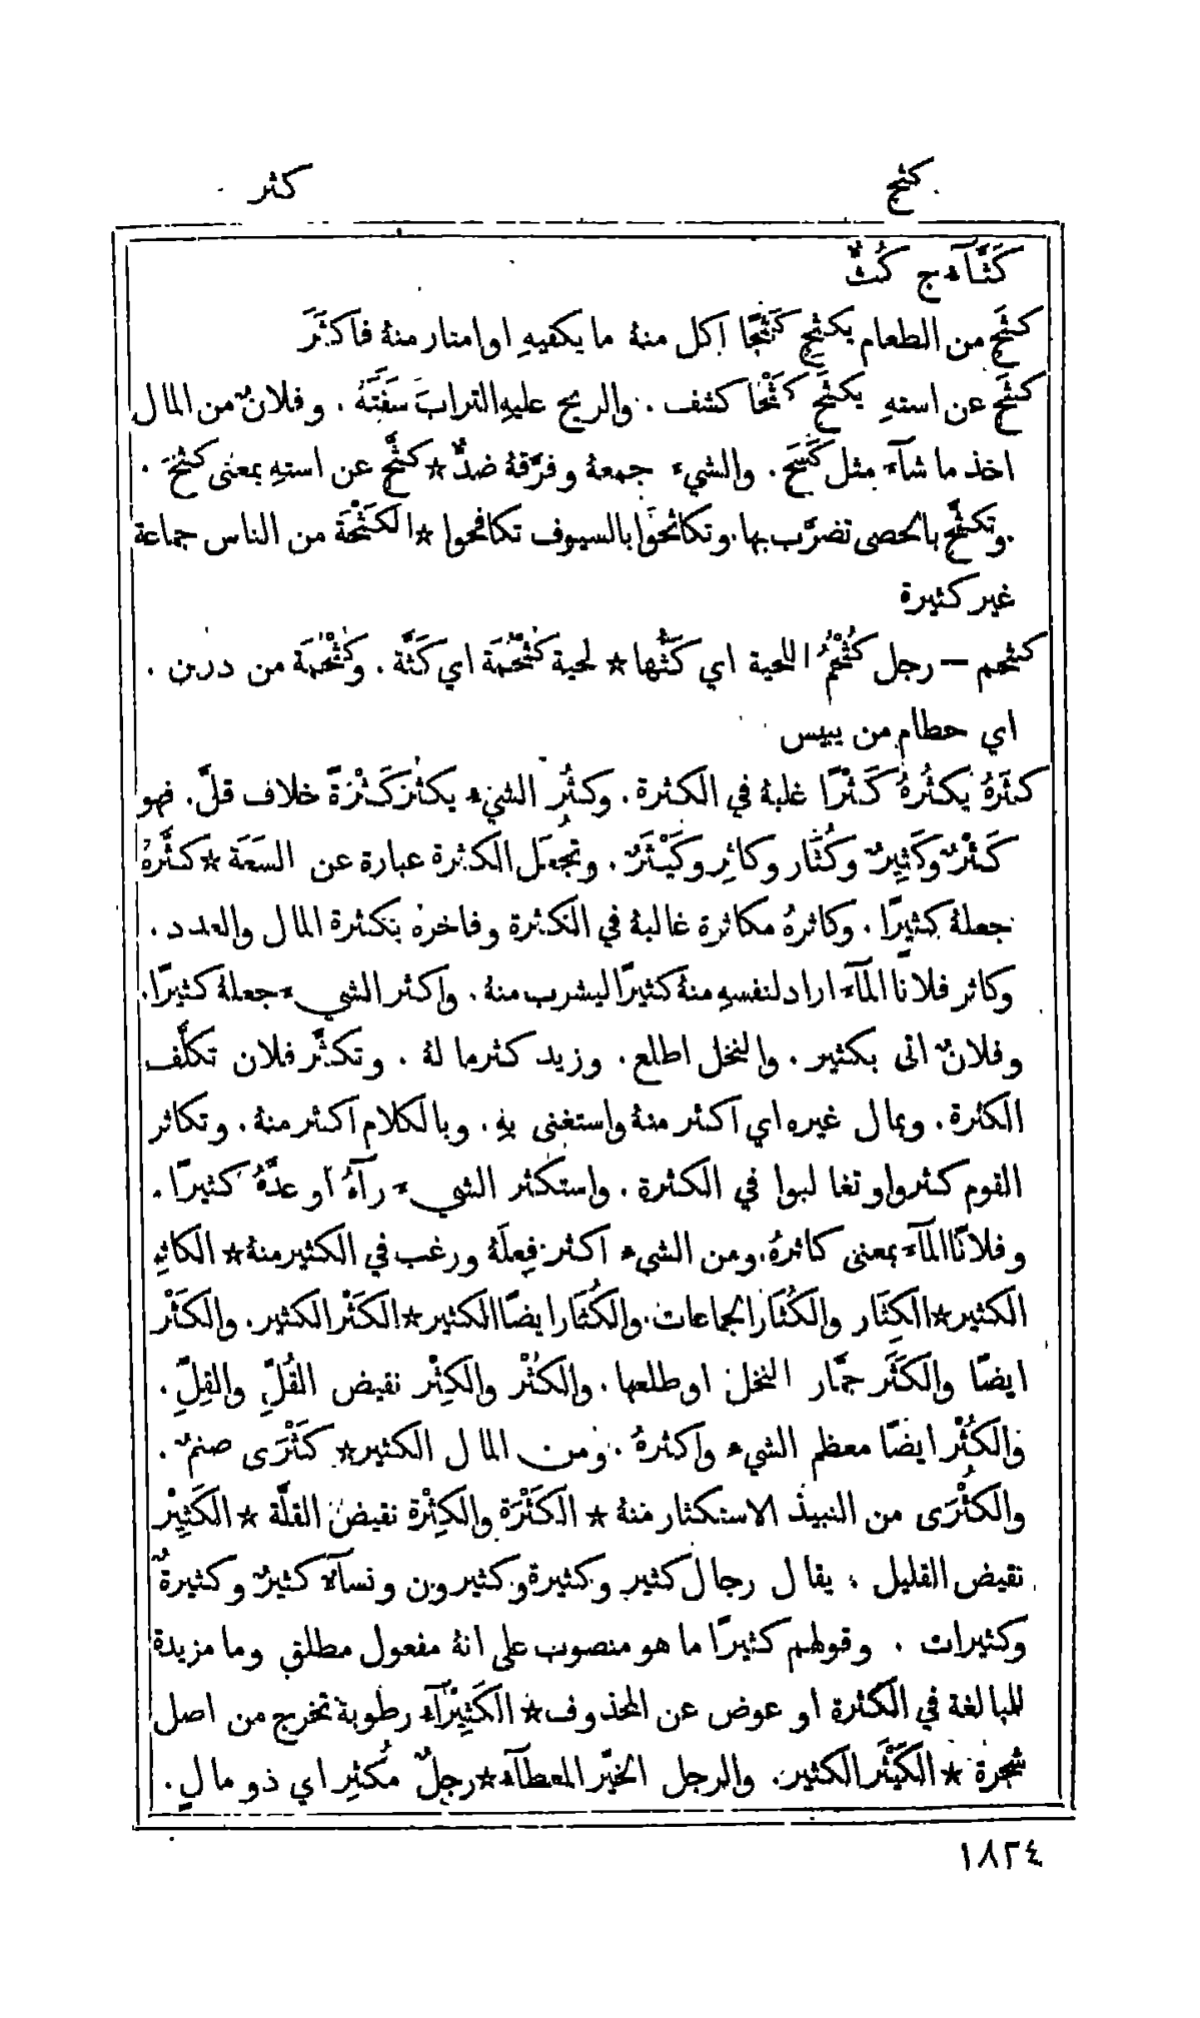 كثج
كثر
كَثَّآء ج كُثٌّ
كثَج من الطعام يكثِج كَثْجًا اكل منهُ ما يكفيهِ او امتار منهُ فاكثَرَ
كثَح عن استهِ يكثَح كَثْحًا كشف . والريح عليهِ الترابَ سَفَتَهُ . وفلانٌ من المال
اخذ ما شآء مثل كَسَح . والشيء جمعهُ وفرَّقهُ ضدٌّ ★ كثَّح عن استهِ بمعنى كثَحَ .
وتكثَّح بالحصى تضرَّب بها . وتكاثحوا بالسيوف تكافحوا ★ الكَثْحَة من الناس جماعة
غير كثيرة
كثحم — رجل كُثْحُمُ اللحية اي كَثُّها ★ لحية كَثْحَمَة اي كَثَّة . وكَثْحَمَة من درين .
اي حطام من يبيس
كثَرَهُ يكثُرهُ كَثْرًا غلبهُ في الكثرة . وكثُر الشيء يكثُر كَثْرَةً خلاف قلَّ . فهو
كَثْرٌ وكَثِيرٌ وكُثَار وكاثِر وكَيْثَرٌ . وتُجعَل الكثرة عبارة عن السَعَة ★ كثَّرهُ
جعلهُ كثيرًا . وكاثرهُ مكاثرة غالبهُ في الكثرة وفاخرهُ بكثرة المال والعدد .
وكاثر فلانًا المآء اراد لنفسهِ منهُ كثيرًا ليشرب منهُ . واكثر الشيء جعلهُ كثيرًا .
وفلانٌ اتى بكثير . والنخل اطلع . وزيد كثر ما لهُ . وتكثَّر فلان تكلَّف
الكثرة . وبمال غيره اي اكثر منهُ واستغنى بهِ . وبالكلام اكثر منهُ . وتكاثر
القوم كثروا وتغالبوا في الكثرة . واستكثر الشيء رآهُ او عدَّهُ كثيرًا .
وفلانًا المآء بمعنى كاثرهُ . ومن الشيء اكثر فِعلَهُ ورغب في الكثير منهُ ★ الكاثِر
الكثير ★ الكِثَار والكُثَار الجماعات . والكُثَار ايضًا الكثير ★ الكَثْر الكثير . والكَثْر
ايضًا والكَثَر جمَّار النخل او طلعها . والكُثْر والكِثْر نقيض القُلِّ والقِلِّ .
والكُثْر ايضًا معظم الشيء واكثرهُ . ومن المال الكثير ★ كَثْرَى صنمٌ .
والكُثْرَى من النبيذ الاستكثار منهُ ★ الكَثْرَة والكِثْرة نقيض القلَّة ★ الكَثِيْر
نقيض القليل . يقال رجال كثير وكثيرة وكثيرون ونسآء كثيرٌ وكثيرةٌ
وكثيرات . وقولهم كثيرًا ما هو منصوب على انهُ مفعول مطلق وما مزيدة
للمبالغة في الكثرة او عوض عن المحذوف ★ الكَثِيْرَآء رطوبة تخرج من اصل
شجرة ★ الكَيْثَر الكثير . والرجل الخيّر المعطآء ★ رجلٌ مُكْثِر اي ذو مالٍ .
١٨٢٤